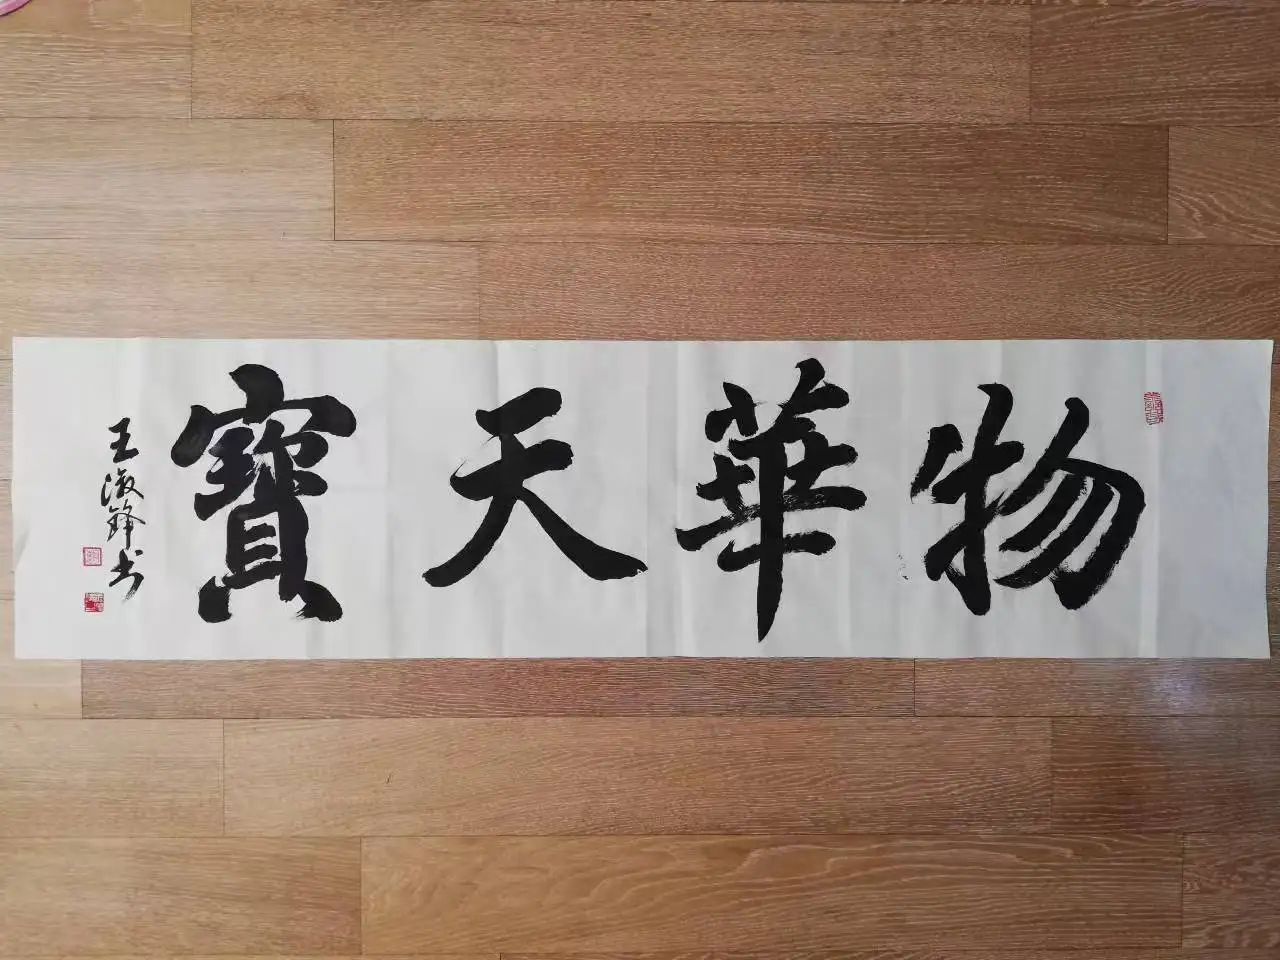 物華天寶
王海鋒书